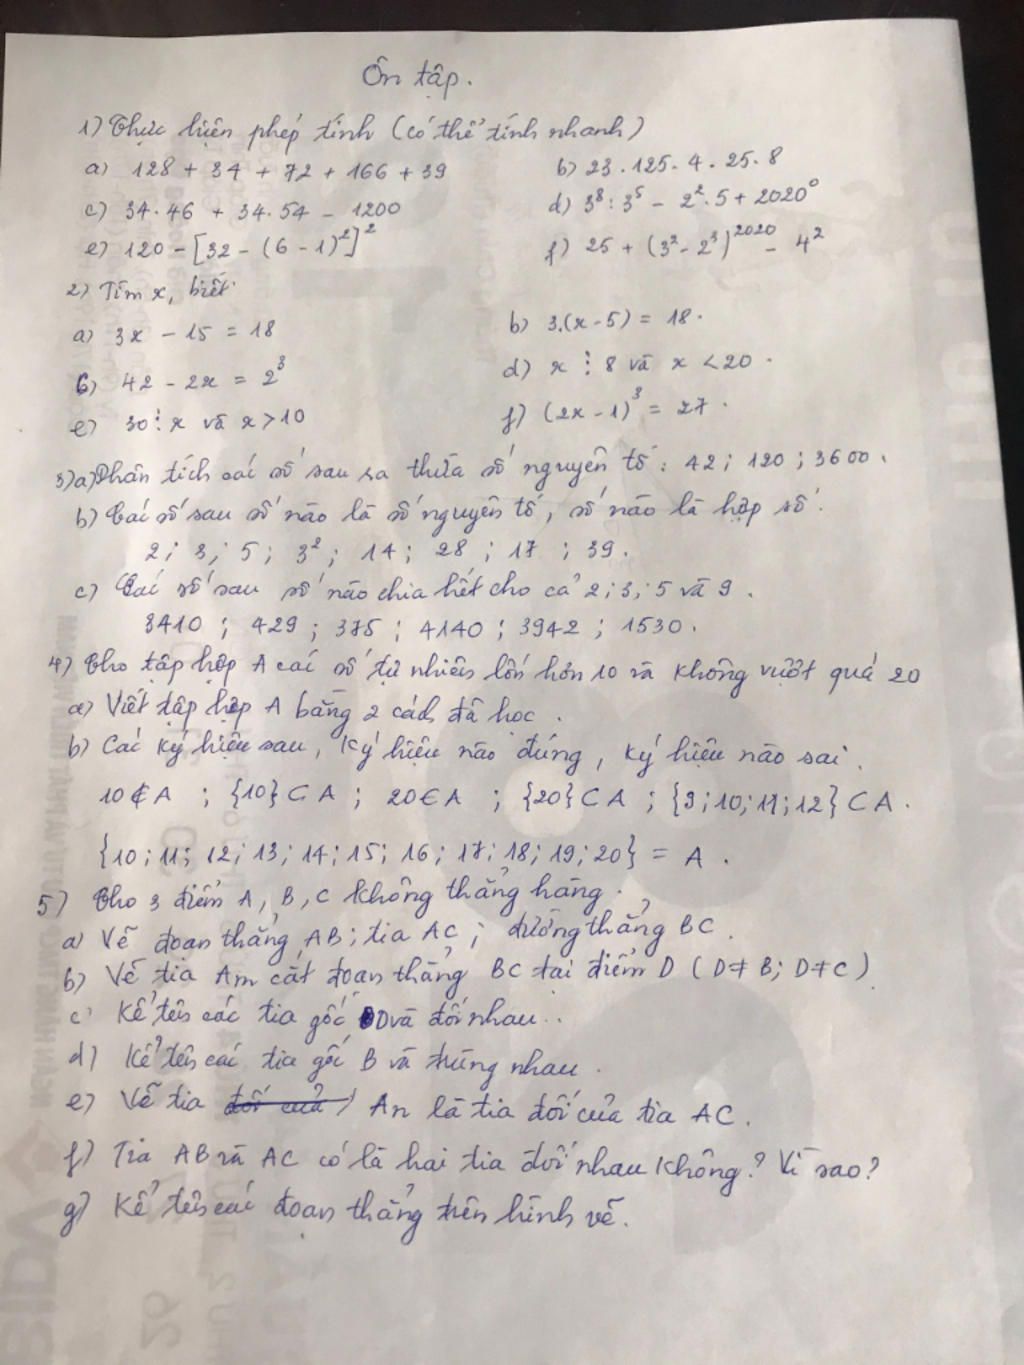 Ôn tập.
1) Thực hiện phép tính (có thể tính nhanh)
a) 128 + 34 + 72 + 166 + 39
b) 23 . 125 . 4 . 25 . 8
c) 34 . 46 + 34 . 54 - 1200
d) 3⁸ : 3⁵ - 2² . 5 + 2020⁰
e) 120 - [32 - (6 - 1)²]²
f) 25 + (3² - 2³)²⁰²⁰ - 4²
2) Tìm x, biết
a) 3x - 15 = 18
b) 3.(x - 5) = 18.
c) 42 - 2x = 2³
d) x ⋮ 8 và x < 20.
e) 30 ⋮ x và x > 10
f) (2x - 1)³ = 27.
3) a) Phân tích các số sau ra thừa số nguyên tố: 42; 120; 3600.
b) Các số sau số nào là số nguyên tố, số nào là hợp số.
2; 3; 5; 3²; 14; 28; 17; 39.
c) Các số sau số nào chia hết cho cả 2; 3; 5 và 9.
3410; 429; 375; 4140; 3942; 1530.
4) Cho tập hợp A các số tự nhiên lớn hơn 10 và không vượt quá 20
a) Viết tập hợp A bằng 2 cách đã học.
b) Các ký hiệu sau, ký hiệu nào đúng, ký hiệu nào sai.
10 ∉ A; {10} ⊂ A; 20 ∈ A; {20} ⊂ A; {9; 10; 11; 12} ⊂ A.
{10; 11; 12; 13; 14; 15; 16; 17; 18; 19; 20} = A.
5) Cho 3 điểm A, B, C không thẳng hàng.
a) Vẽ đoạn thẳng AB; tia AC; đường thẳng BC.
b) Vẽ tia Am cắt đoạn thẳng BC tại điểm D (D ≠ B; D ≠ C)
c) Kể tên các tia gốc D và đối nhau..
d) Kể tên các tia gốc B và trùng nhau.
e) Vẽ tia đối của An là tia đối của tia AC.
f) Tia AB và AC có là hai tia đối nhau không? Vì sao?
g) Kể tên các đoạn thẳng trên hình vẽ.